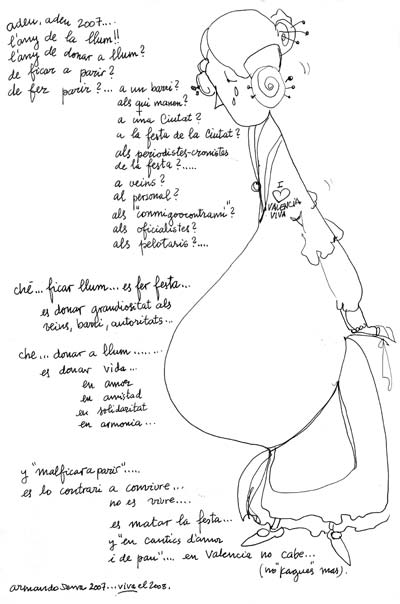 adeu, adeu 2007....
l'any de la llum!!
l'any de donar a llum?
de ficar a parir?
de fer parir?... a un barri?
als qui manen?
a una Ciutat?
a la festa de la Ciutat?
als periodistes-cronistes
de la festa?.....
a veins?
al personal?
als "conmigoocontrami"?
als oficialistes?
als pelotaris?....
I
VALENCIA
VIVA
ché... ficar llum... es fer festa...
es donar grandiositat als
veins, barri, autoritats...
che... donar a llum.......
es donar vida...
en amor
en amistad
en solidaritat
en armonia...
y "malficar a parir".....
es lo contrari a convivre...
no es vivre....
es matar la festa...
y "en cantics d'amor
i de pau".... en Valencia no cabe...
(no "kagues" mas).
armando serra 2007... viva el 2008.